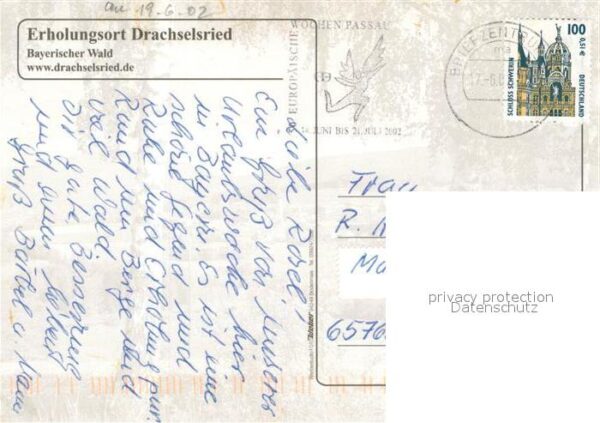 an 19.6.02
Erholungsort Drachselsried
Bayerischer Wald
www.drachselsried.de
EUROPÄISCHE WOCHEN PASSAU
JUNI BIS 21. JULI 2002
BRIEFZENTRUM
100
0,51€
SCHLOSS SCHWERIN
DEUTSCHLAND
Liebe Rosel!
Ein Gruß von unserer
Urlaubswoche hier
in Bayern. Es ist eine
schöne Gegend und
Ruhe und Erholung pur.
Rund um Berge und
viel Wald.
Dir gute Besserung
und einen lieben
Gruß Bärbel u.
Frau
R.
6576
privacy protection
Datenschutz